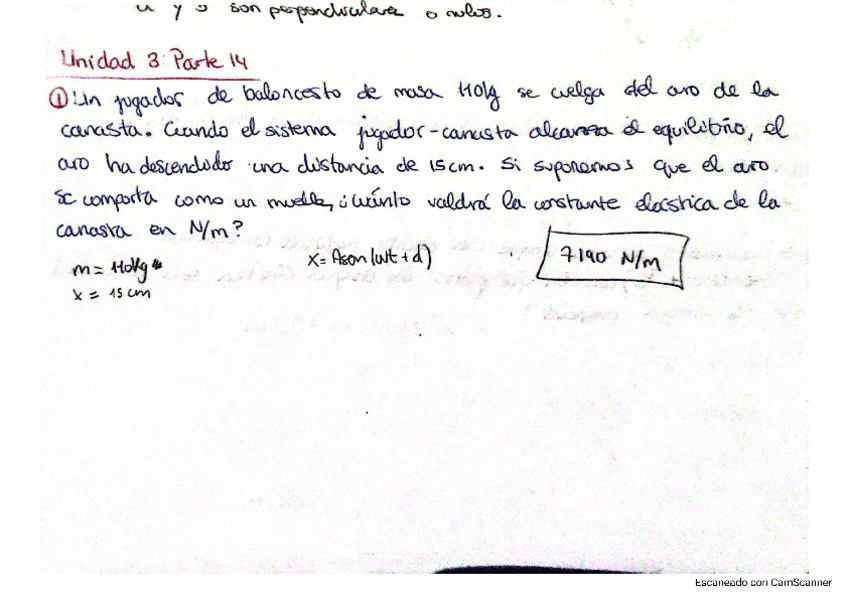 u y v son perpendiculares o nulos.
Unidad 3: Parte 14
① Un jugador de baloncesto de masa 110kg se cuelga del aro de la
canasta. Cuando el sistema jugador-canasta alcanza el equilibrio, el
aro ha descendido una distancia de 15cm. Si suponemos que el aro
se comporta como un muelle, ¿cuánto valdrá la constante elástica de la
canasta en N/m?
m = 110kg
x = Asen(wt + d)
7190 N/m
x = 15 cm
Escaneado con CamScanner